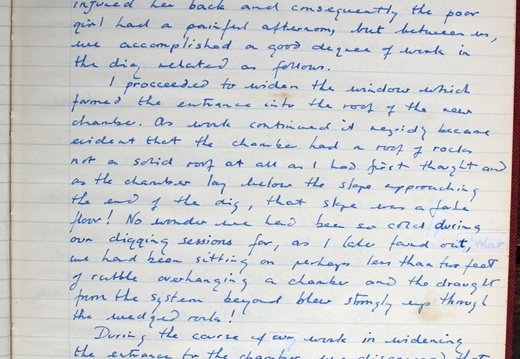 injured her back and consequently the poor
girl had a painful afternoon, but between us,
we accomplished a good degree of work in
the dig related as follows.
I procceeded to widen the window which
formed the entrance into the roof of the new
chamber. As work continued it rapidly became
evident that the chamber had a roof of rocks
not a solid roof at all as I had first thought and
as the chamber lay below the slope approaching
the end of the dig, that slope was a false
floor! No wonder we had been so cold during
our digging sessions for, as I later found out, that
we had been sitting on perhaps less than two feet
of rubble overhanging a chamber and the draught
from the system beyond blew strongly up through
the wedged rocks!
During the course of our work in widening
the entrance to the chamber we discovered that